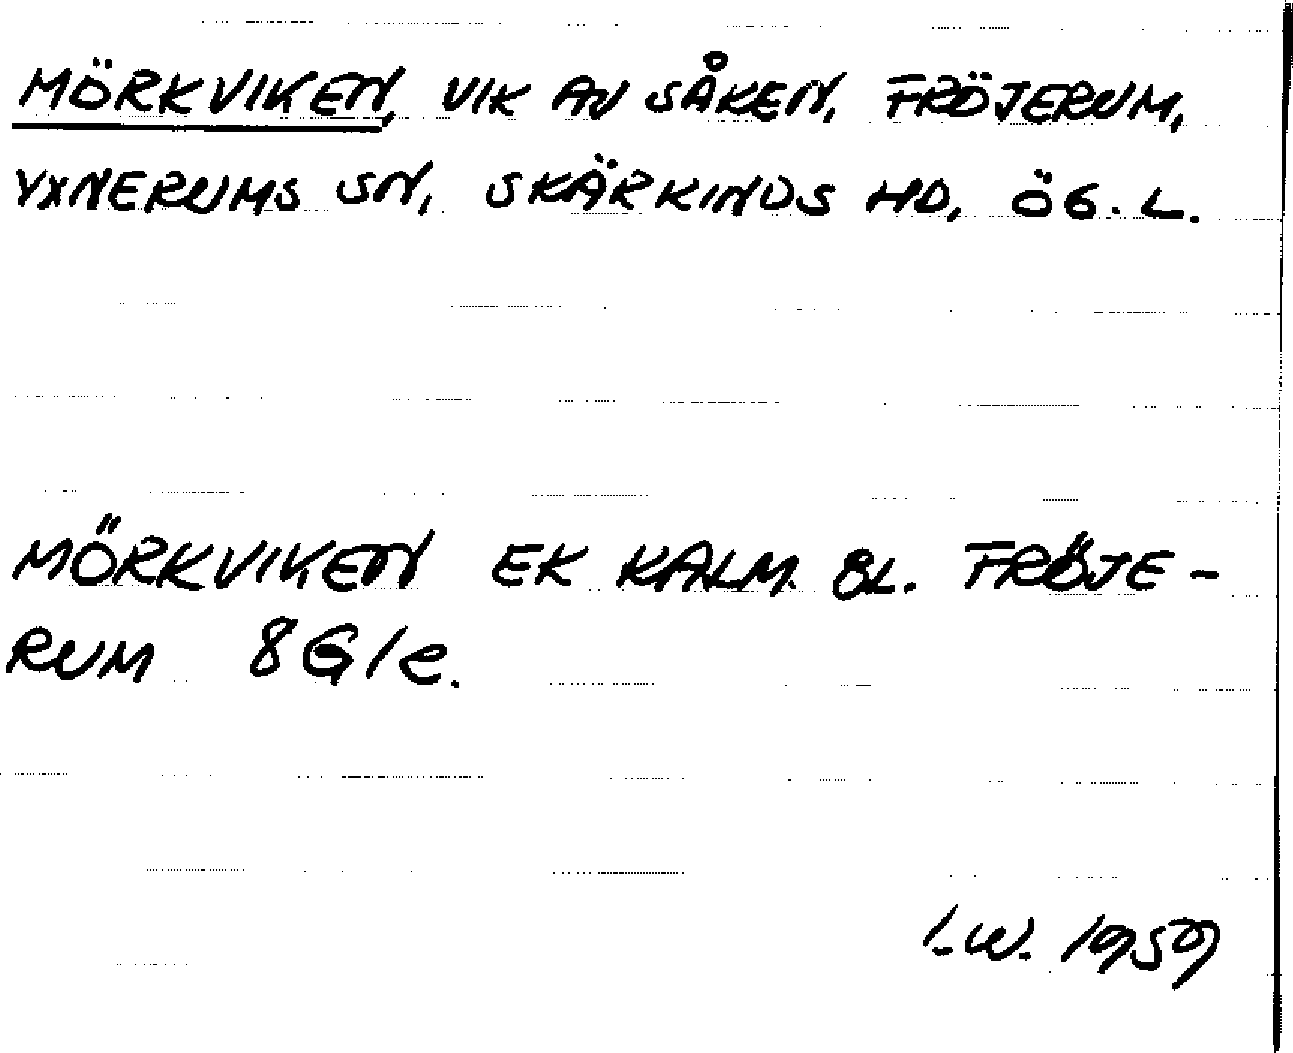 MÖRKVIKEN, VIK AV SÅKEN, FRÖJERUM,
YXNERUMS SN, SKÄRKINDS HD, ÖG. L.
MÖRKVIKEN EK KALM. BL. FRÖJE-
RUM 8G1e.
I.W. 1959